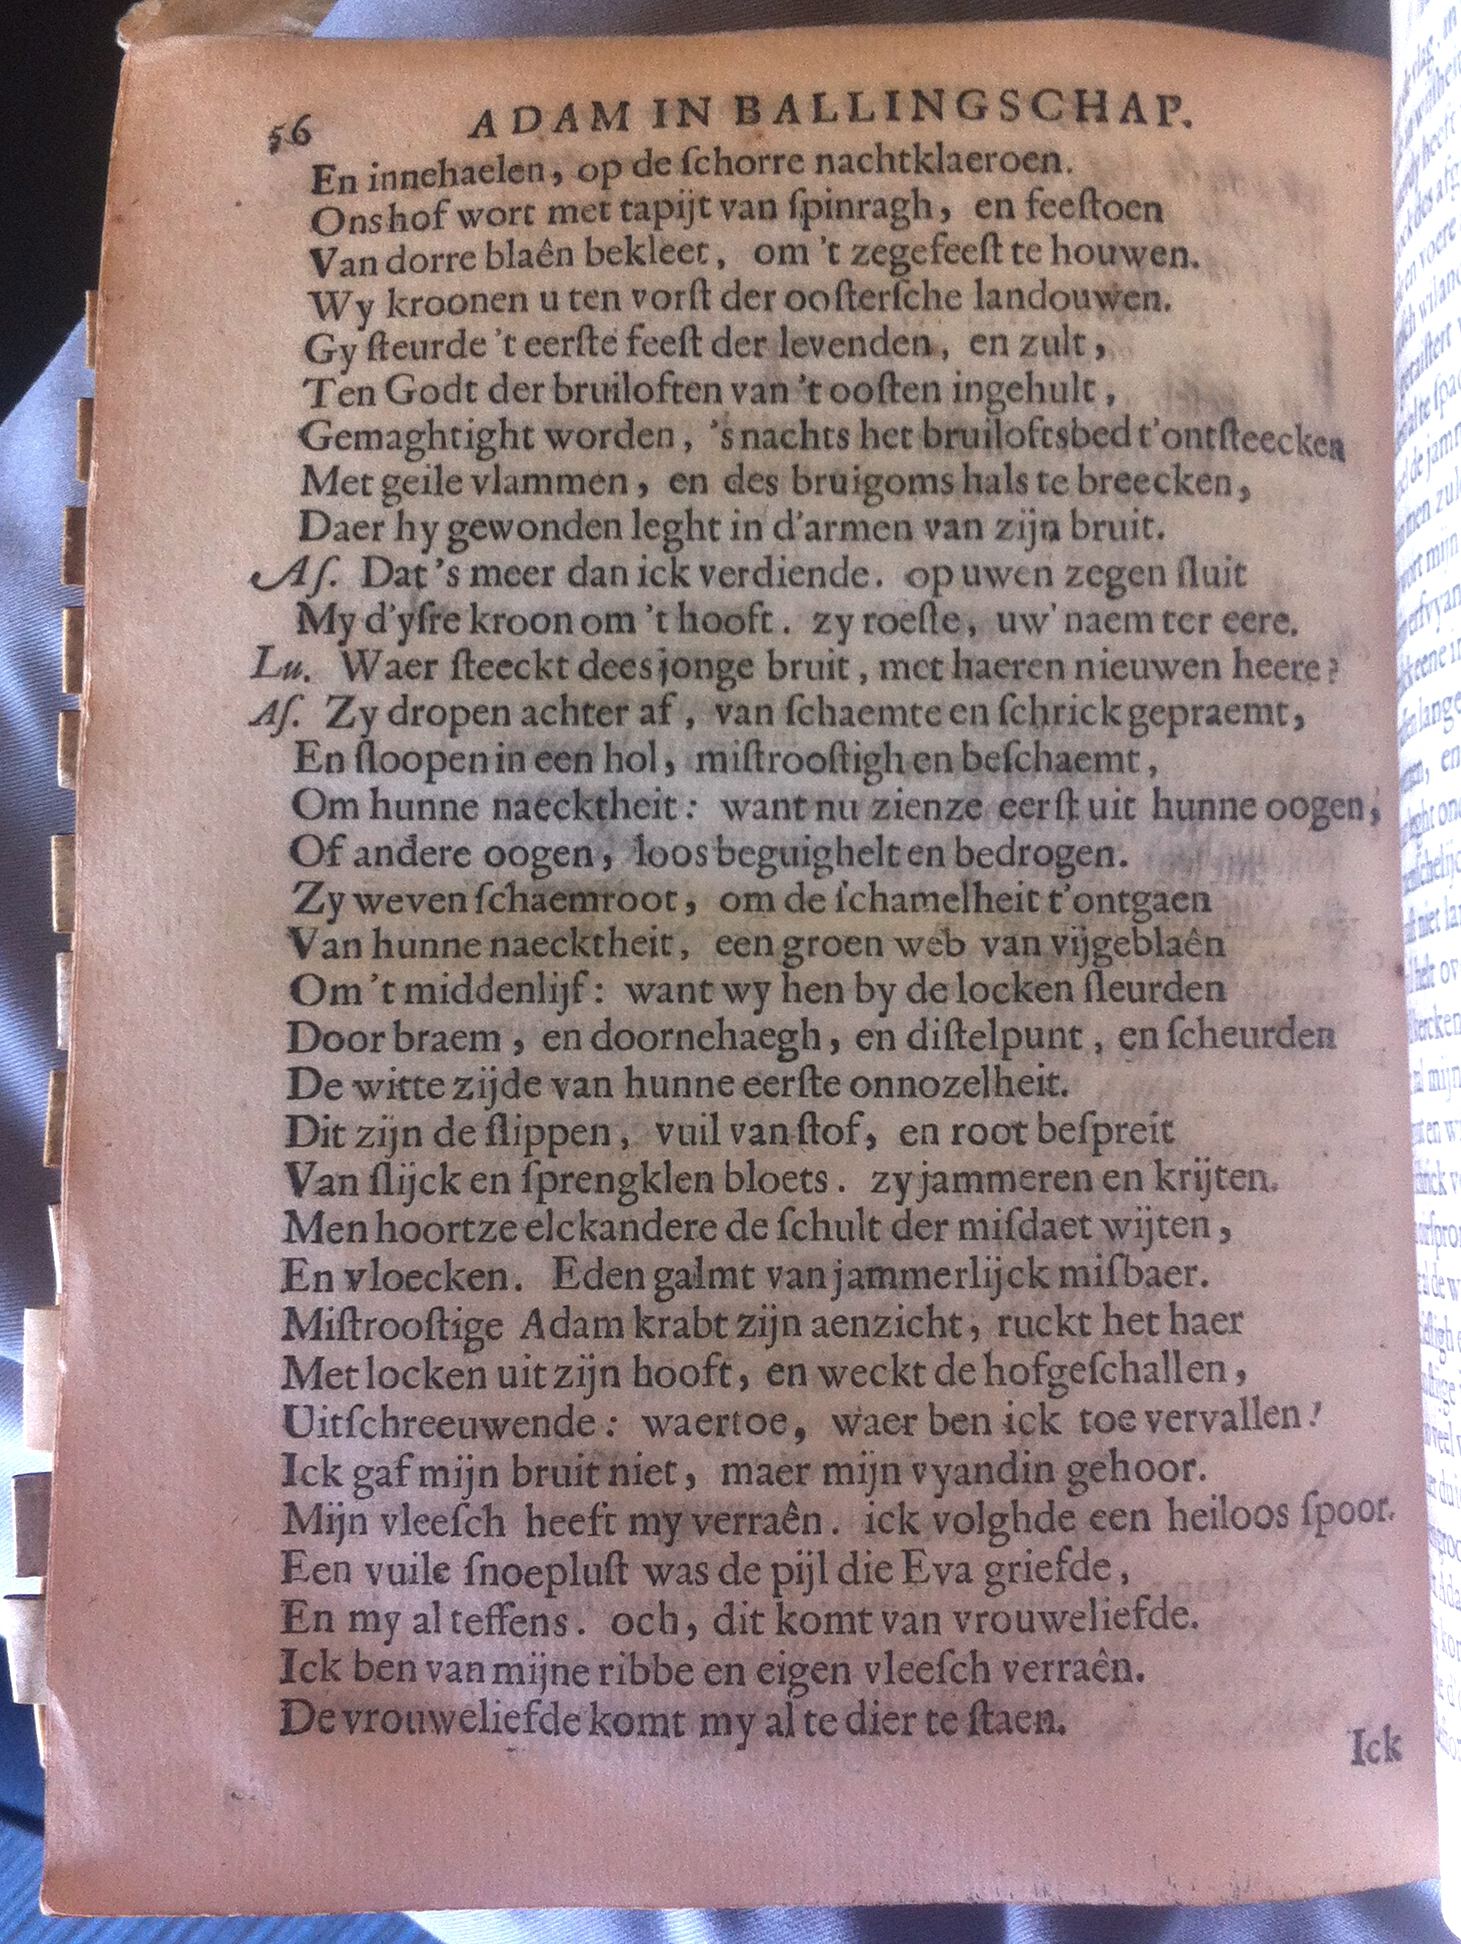 56 ADAM IN BALLINGSCHAP.
En innehaelen, op de ſchorre nachtklaeroen.
Ons hof wort met tapijt van ſpinragh, en feeſtoen
Van dorre blaên bekleet, om 't zegefeeſt te houwen.
Wy kroonen u ten vorſt der ooſterſche landouwen.
Gy ſteurde 't eerſte feeſt der levenden, en zult,
Ten Godt der bruiloften van 't ooſten ingehult,
Gemaghtight worden, 's nachts het bruiloftsbed t'ontſteecken
Met geile vlammen, en des bruigoms hals te breecken,
Daer hy gewonden leght in d'armen van zijn bruit.
Aſ. Dat 's meer dan ick verdiende. op uwen zegen ſluit
My d'yſre kroon om 't hooft. zy roeſte, uw' naem ter eere.
Lu. Waer ſteeckt dees jonge bruit, met haeren nieuwen heere?
Aſ. Zy dropen achter af, van ſchaemte en ſchrick gepraemt,
En ſloopen in een hol, miſtrooſtigh en beſchaemt,
Om hunne naecktheit: want nu zienze eerſt uit hunne oogen,
Of andere oogen, loos beguighelt en bedrogen.
Zy weven ſchaemroot, om de ſchamelheit t'ontgaen
Van hunne naecktheit, een groen web van vijgeblaên
Om 't middenlijf: want wy hen by de locken ſleurden
Door braem, en doornehaegh, en diſtelpunt, en ſcheurden
De witte zijde van hunne eerſte onnozelheit.
Dit zijn de ſlippen, vuil van ſtof, en root beſpreit
Van ſlijck en ſprengklen bloets. zy jammeren en krijten.
Men hoortze elckandere de ſchult der miſdaet wijten,
En vloecken. Eden galmt van jammerlijck miſbaer.
Miſtrooſtige Adam krabt zijn aenzicht, ruckt het haer
Met locken uit zijn hooft, en weckt de hofgeſchallen,
Uitſchreeuwende: waertoe, waer ben ick toe vervallen!
Ick gaf mijn bruit niet, maer mijn vyandin gehoor.
Mijn vleeſch heeft my verraên. ick volghde een heiloos ſpoor.
Een vuile ſnoepluſt was de pijl die Eva griefde,
En my al teffens. och, dit komt van vrouweliefde.
Ick ben van mijne ribbe en eigen vleeſch verraên.
De vrouweliefde komt my al te dier te ſtaen.
Ick